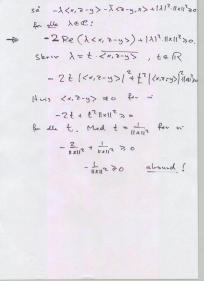 så -λ<x,z-y> - λ̄<z-y,x> + |λ|²·||x||² ≥ 0
för alla λ∈ℂ:
→ -2 Re(λ<x,z-y>) + |λ|²·||x||² ≥ 0.
Skriv λ = t·<x,z-y>, t∈ℝ
-2t|<x,z-y>|² + t²|<x,z-y>|²||x||² ≥ 0
<x,z-y> ≠ 0 får vi
-2t + t²||x||² ≥ 0
för alla t. Med t = 1/||x||² får vi
-2/||x||² + 1/||x||² ≥ 0
-1/||x||² ≥ 0 absurd!